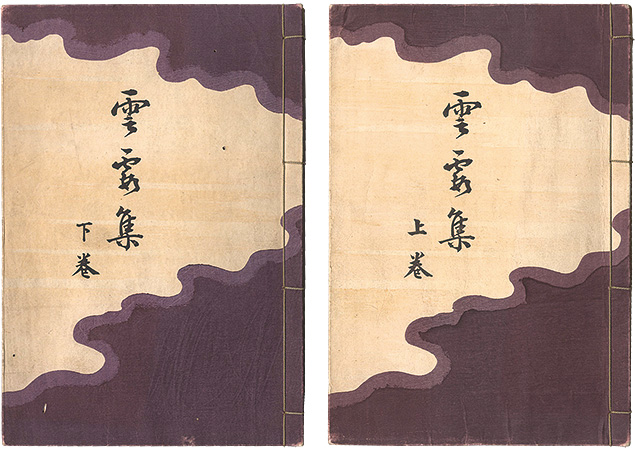 雲霞集
上巻
雲霞集
下巻